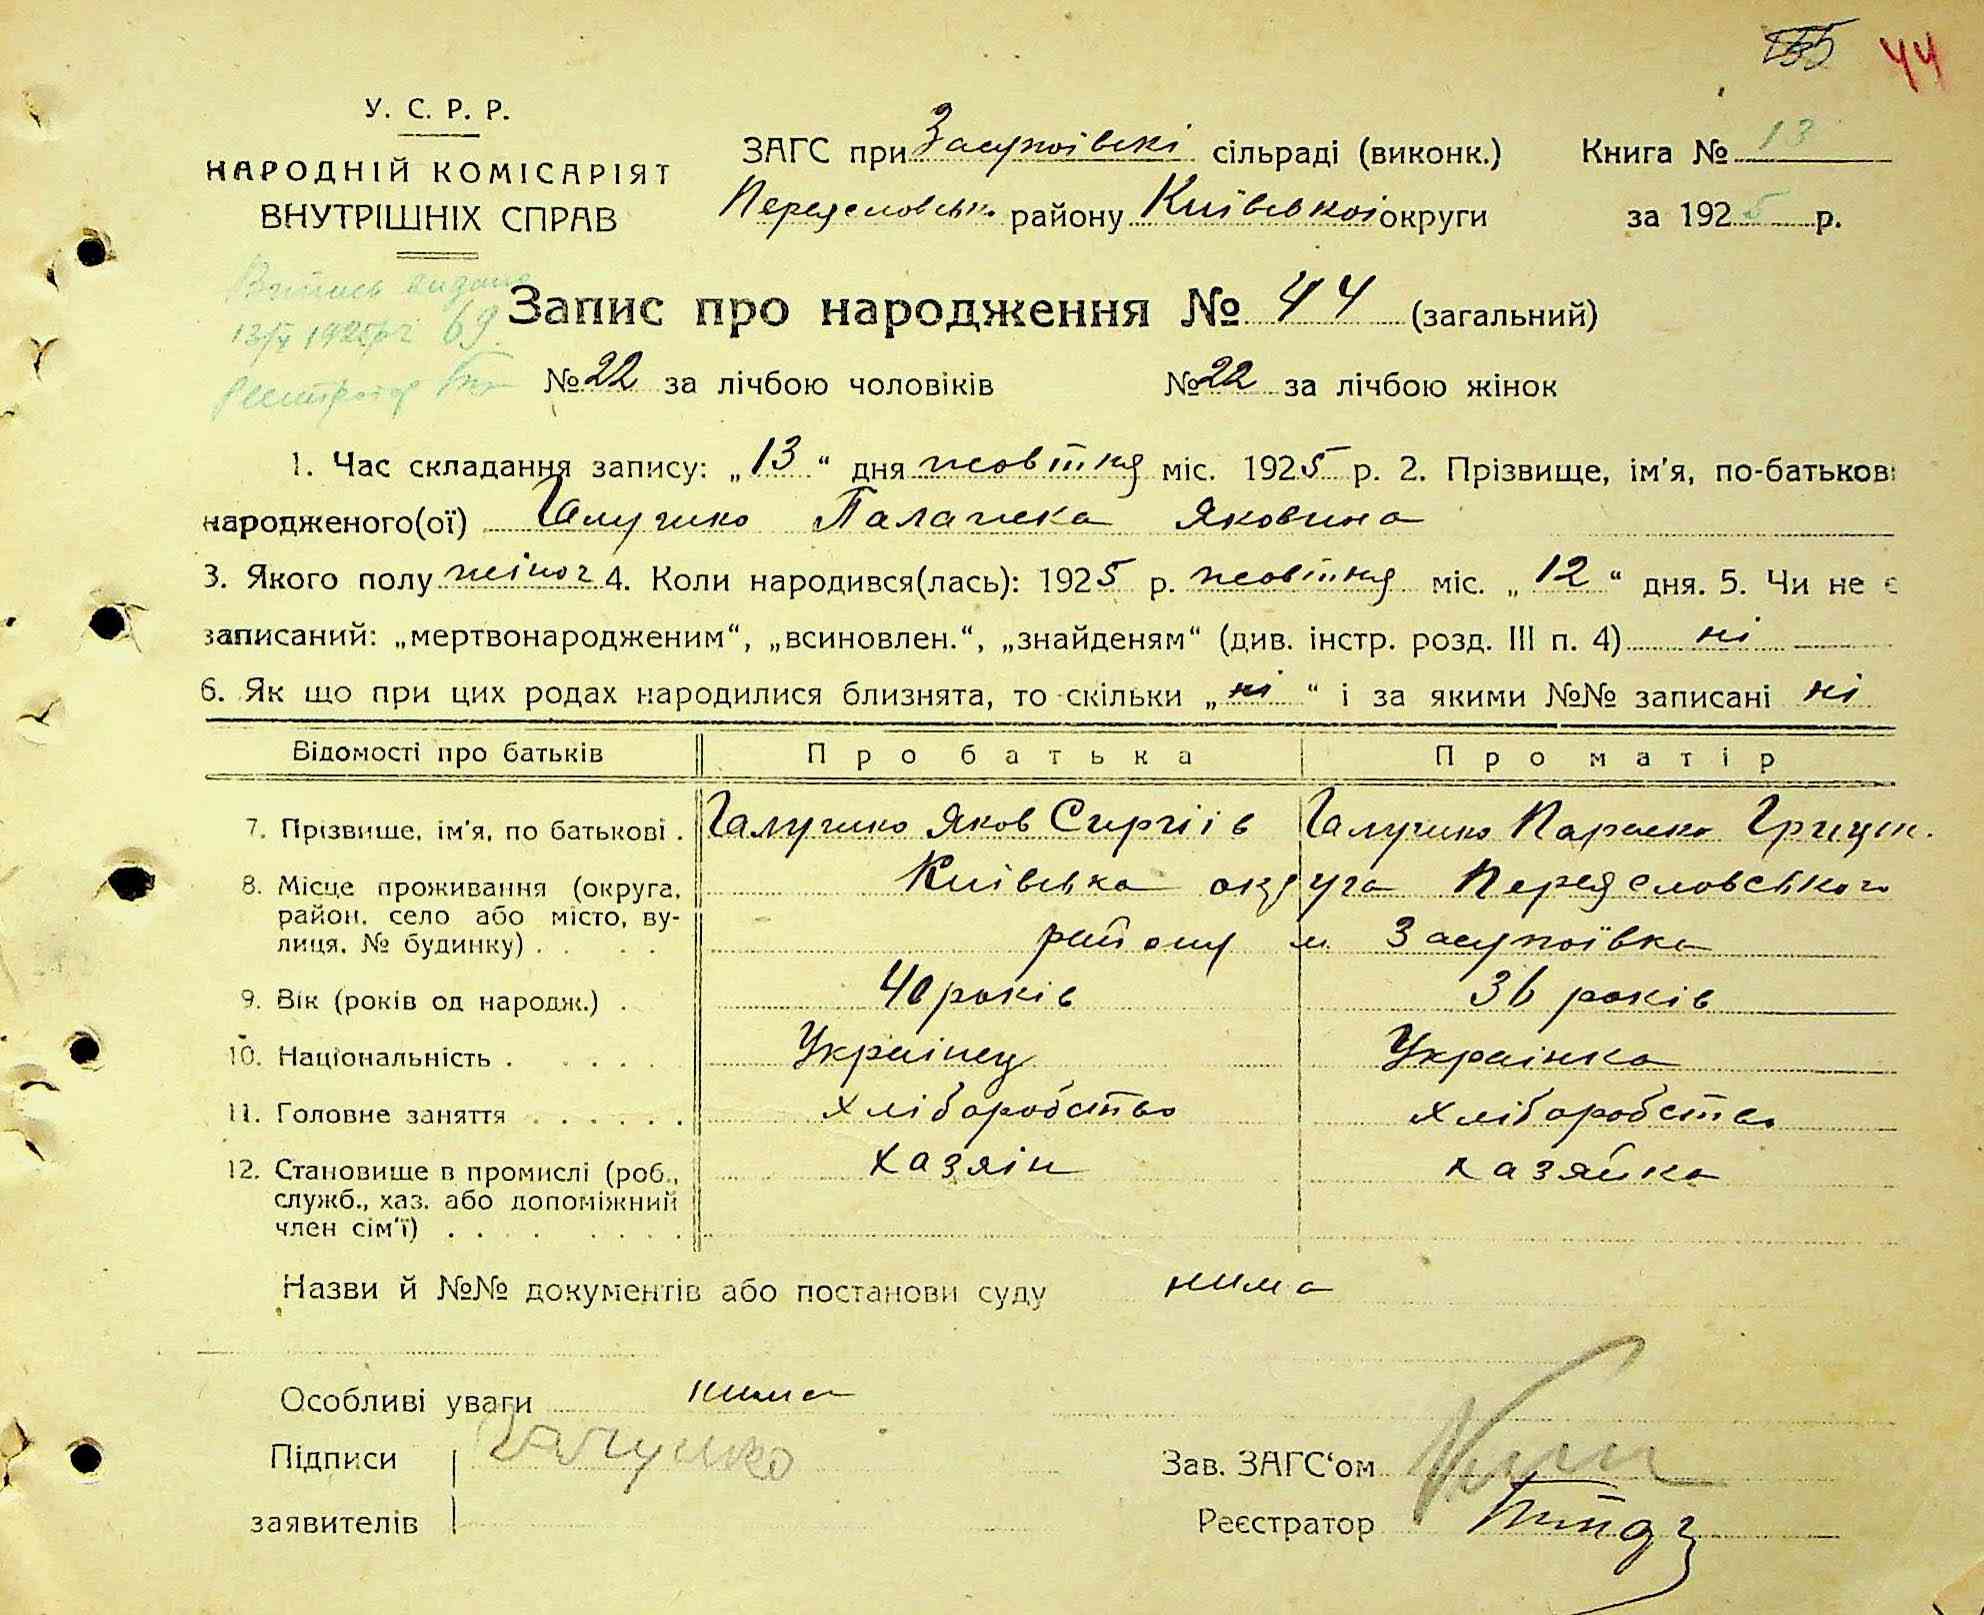 44
У. С. Р. Р.
НАРОДНІЙ КОМІСАРІЯТ
ВНУТРІШНІХ СПРАВ
ЗАГС при Засупоівскі сільраді (виконк.)
Книга № 13
Переяславськ. району Київськоі округи
за 1925 р.
Запис про народження № 44 (загальний)
Випись видана
13/X 1925 р. 69
Реєстратор
№ 22 за лічбою чоловіків
№ 22 за лічбою жінок
1. Час складання запису: „ 13 “ дня жовтня міс. 1925 р. 2. Прізвище, ім'я, по-батькові
народженого(ої) Галушко Палажка Яковина
3. Якого полу жіноч 4. Коли народився(лась): 1925 р. жовтня міс. „ 12 “ дня. 5. Чи не є
записаний: „мертвонародженим“, „всиновлен.“, „знайденям“ (див. інстр. розд. III п. 4) ні
6. Як що при цих родах народилися близнята, то скільки „ ні “ і за якими №№ записані ні
Відомості про батьків
Про батька
Про матір
7. Прізвище, ім'я, по батькові .
Галушко Яков Сиргіів
Галушко Параска Грицьк.
8. Місце проживання (округа,
район, село або місто, ву-
лиця, № будинку) . . . .
Київська округа Переяславського
району м Засупоївка
9. Вік (років од народж.) .
40 років
36 років
10. Національність . . . . .
Украінец
Украінка
11. Головне заняття . . . . . .
хліборобство
хліборобство
12. Становище в промислі (роб.,
служб., хаз. або допоміжний
член сім'ї) . . . . . . . .
хазяін
хазяйка
Назви й №№ документів або постанови суду нима
Особливі уваги нима
Підписи
заявителів
Галушко
Зав. ЗАГС‘ом
Реєстратор